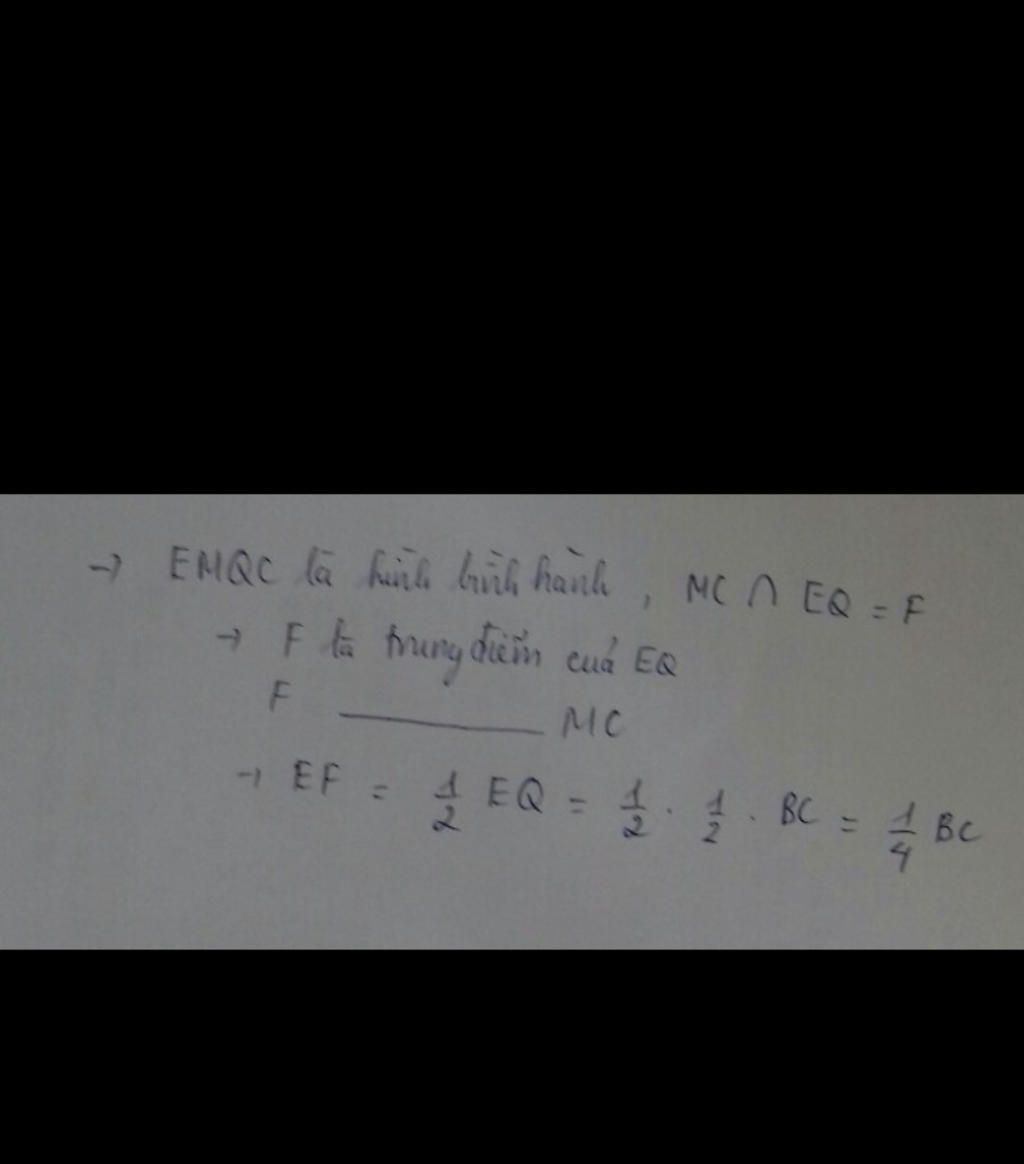 → EMQC là hình bình hành, MC ∩ EQ = F
→ F là trung điểm của EQ
F ———— MC
→ EF = 1/2 EQ = 1/2 . 1/2 . BC = 1/4 BC